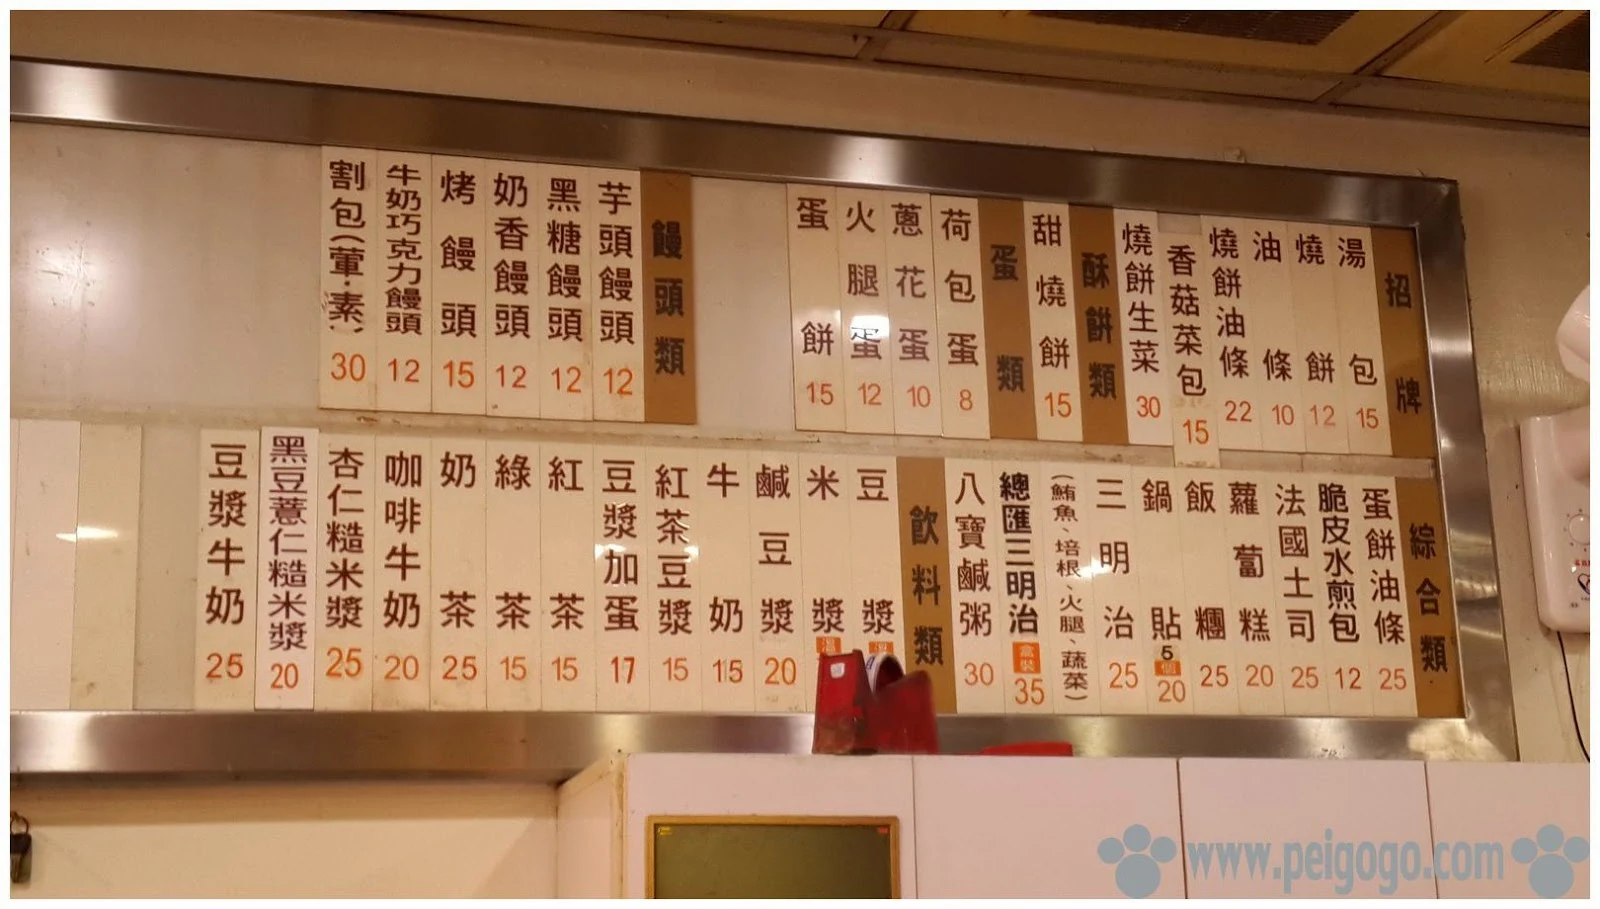 招牌
湯包 15
燒餅 12
油條 10
燒餅油條 22
香菇菜包 15
燒餅生菜 30
酥餅類
甜燒餅 15
蛋類
荷包蛋 8
蔥花蛋 10
火腿蛋 12
蛋餅 15
饅頭類
芋頭饅頭 12
黑糖饅頭 12
奶香饅頭 12
烤饅頭 15
牛奶巧克力饅頭 12
割包(葷·素) 30
綜合類
蛋餅油條 25
脆皮水煎包 12
法國土司 25
蘿蔔糕 20
飯糰 25
鍋貼 5個 20
三明治 25
(鮪魚、培根、火腿、蔬菜)
總匯三明治 盒裝 35
八寶鹹粥 30
飲料類
豆漿
米漿
鹹豆漿 20
牛奶 15
紅茶豆漿 15
豆漿加蛋 17
紅茶 15
綠茶 15
奶茶 25
咖啡牛奶 20
杏仁糙米漿 25
黑豆薏仁糙米漿 20
豆漿牛奶 25
www.peigogo.com